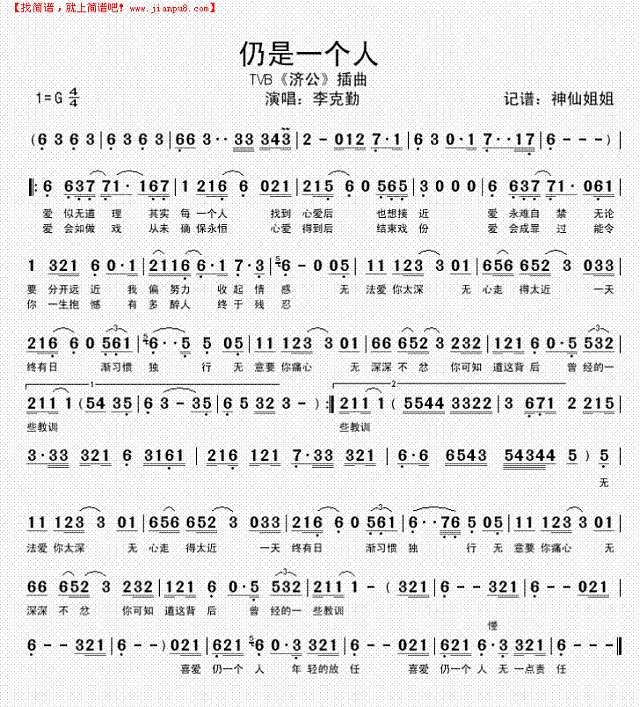 【找简谱，就上简谱吧! www.jianpu8.com】
仍是一个人
TVB《济公》插曲
1=G 4/4 演唱：李克勤 记谱：神仙姐姐
(6 3 6 3 | 6 3 6 3 | 66 3·· 33 343 | 2 - 012 7·1 | 6 3 0·1 7··17 | 6 - - - )|
‖: 6 637 71· 167 | 1 216 6 021 | 215 6 0 565 | 3 0 0 0 | 6 637 71· 061 |
爱 似无道 理 其实 每 一个人 找到 心爱后 也想接 近 爱 永难自 禁 无论
爱 会如做 戏 从未 确 保永恒 心爱 得到后 结束戏 份 爱 会成罪 过 能令
1 321 6 0·1 | 2116 6·1 7·3 | 6 - 0 05 | 11 123 3 01 | 656 652 3 033 |
要 分开远 近 我 偏 努力 收 起 情 感 无 法爱 你太深 无 心走 得太近 一天
你 一生抱 憾 有 多 醉人 终 于 残 忍
216 6 0 561 | 6·· 5 5 05 | 11 123 3 01 | 66 652 3 232 | 121 6 0·5 332 |
终有日 渐习惯 独 行 无 意要 你痛心 无 深深 不 忿 你可知 道这背 后 曾 经的一
1 2
211 1 (54 35 | 6 3 - 35 | 6 5 532 3 - ):‖ 211 1 ( 5544 3322 | 3 671 2 215 |
些教训 些教训
3·33 321 6 3161 | 216 121 7·33 321 | 6·6 6543 54344 5 ) 5 |
无
11 123 3 01 | 656 652 3 033 | 216 6 0 561 | 6·· 76 5 05 | 11 123 3 01 |
法爱 你太深 无 心走 得太近 一天 终有日 渐习惯 独 行 无 意要 你痛心 无
66 652 3 232 | 121 6 0·5 332 | 211 1 - ( 321 | 6 - - 321 | 6 - - 021 |
深深 不 忿 你可知 道这背 后 曾 经的一 些教训
慢
6 - - 321 | 6 - - ) 021 | 621 6 0·3 321 | 6 - - 021 | 621 6·3 321 | 6 - - - ‖
喜爱 仍一个 人 年 轻的放 任 喜爱 仍一个 人 无 一点责 任